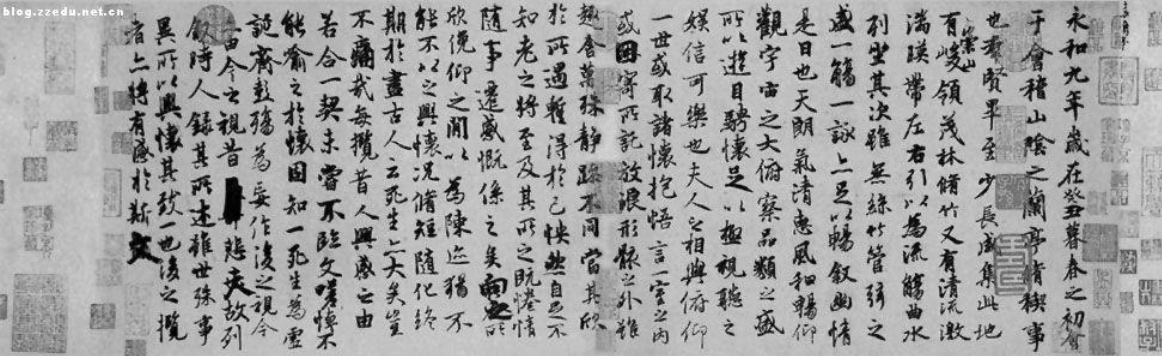 blog.zzedu.net.cn
永和九年歲在癸丑暮春之初會
于會稽山陰之蘭亭脩稧事
也羣賢畢至少長咸集此地
有崇山峻領茂林脩竹又有清流激
湍暎帶左右引以為流觴曲水
列坐其次雖無絲竹管弦之
盛一觴一詠亦足以暢敘幽情
是日也天朗氣清惠風和暢仰
觀宇宙之大俯察品類之盛
所以遊目騁懷足以極視聽之
娛信可樂也夫人之相與俯仰
一世或取諸懷抱悟言一室之內
或因寄所託放浪形骸之外雖
趣舍萬殊靜躁不同當其欣
於所遇暫得於己怏然自足不
知老之將至及其所之既惓情
隨事遷感慨係之矣向之所
欣俛仰之閒以為陳迹猶不
能不以之興懷況脩短隨化終
期於盡古人云死生亦大矣豈
不痛哉每攬昔人興感之由
若合一契未嘗不臨文嗟悼不
能喻之於懷固知一死生為虛
誕齊彭殤為妄作後之視今
亦由今之視昔悲夫故列
敘時人錄其所述雖世殊事
異所以興懷其致一也後之攬
者亦將有感於斯文